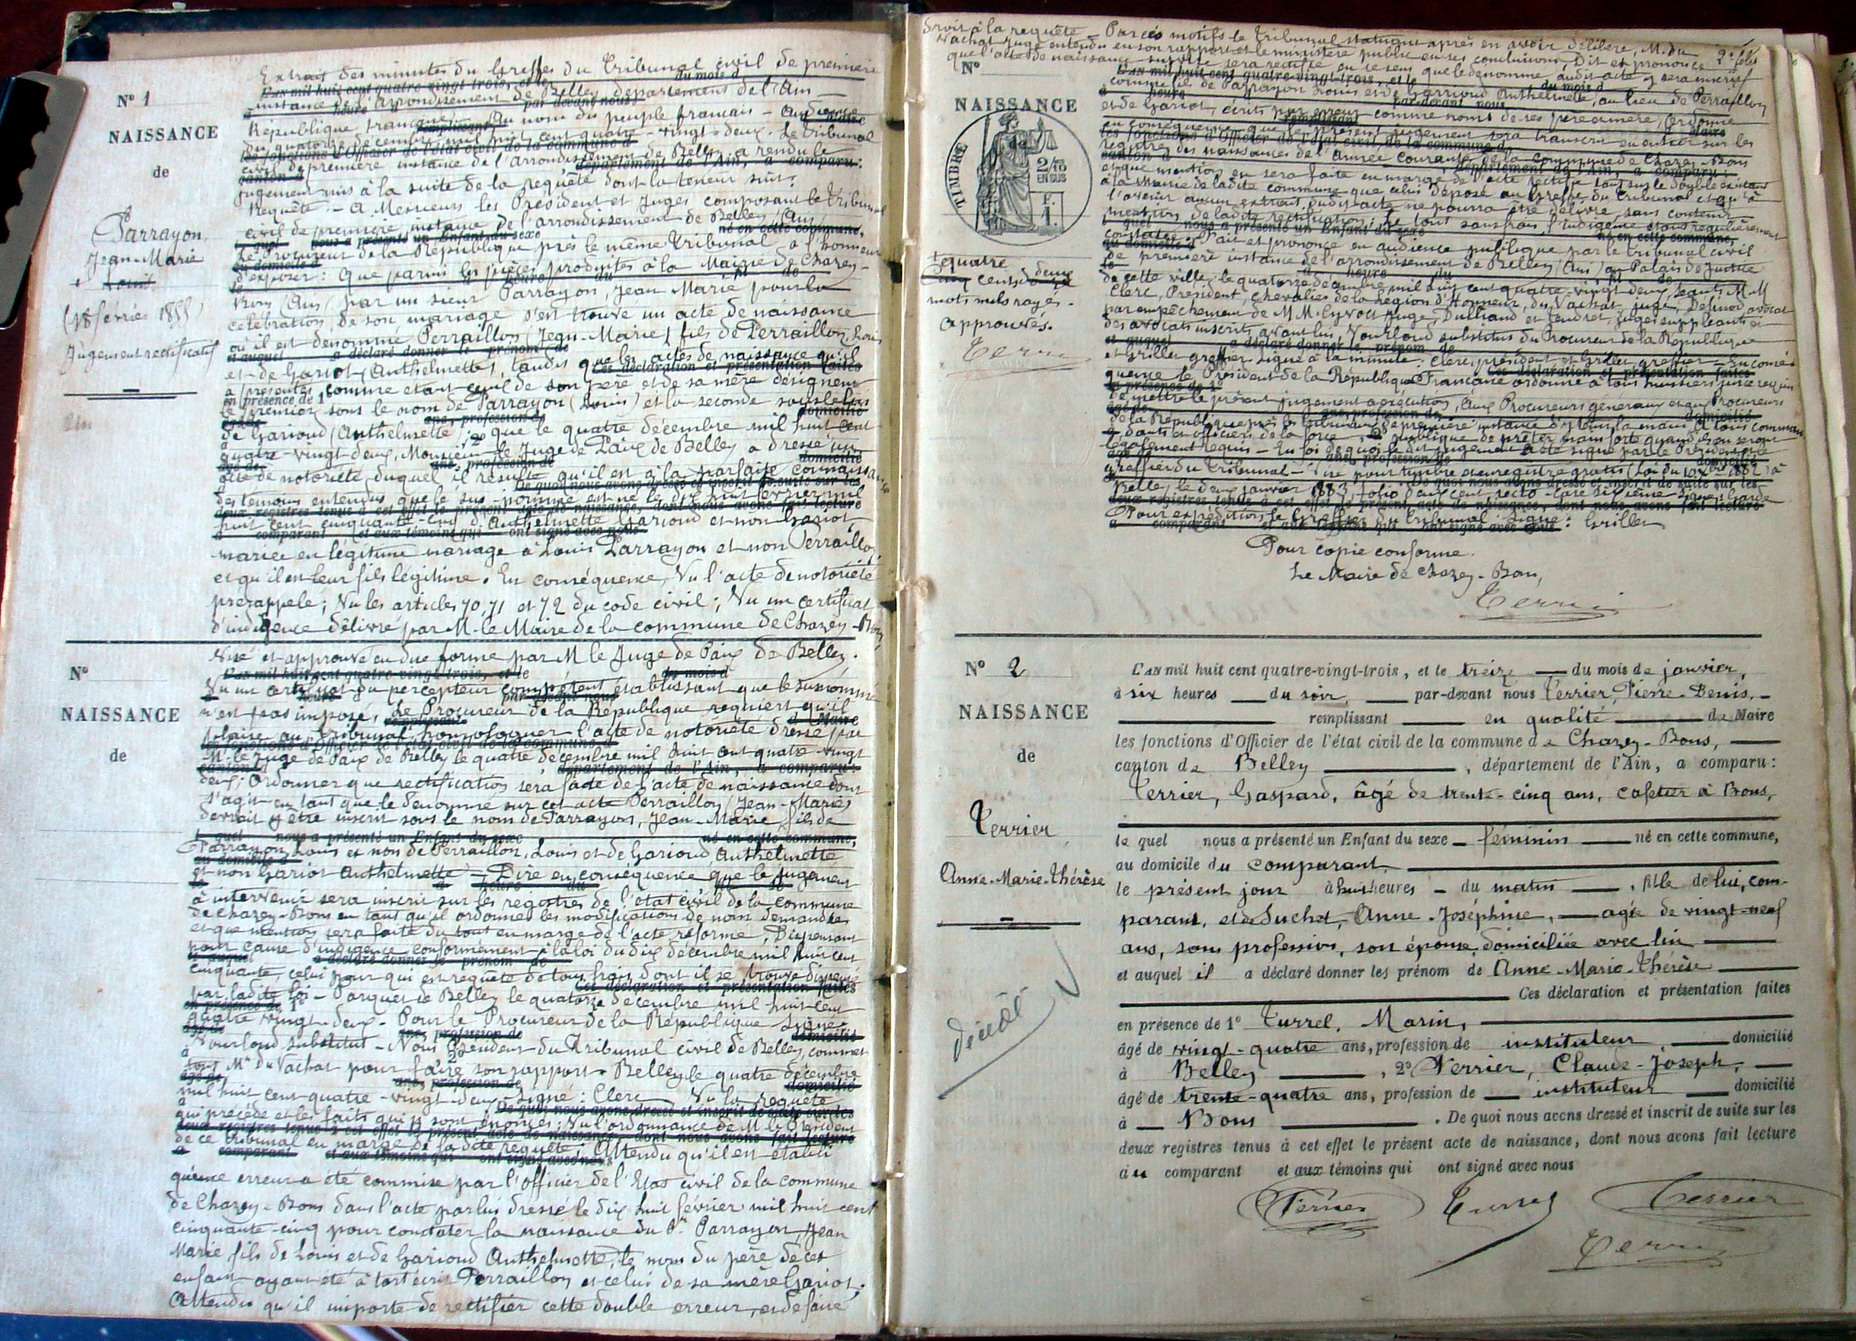 Extrait des minutes du Greffe du Tribunal civil de première
instance de l'arrondissement de Belley, département de l'Ain —
République française — Au nom du peuple français — Audience
du quatorze décembre mil huit cent quatre-vingt-deux. Le tribunal
civil de première instance de l'arrondissement de Belley a rendu le
jugement mis à la suite de la requête dont la teneur suit:
Requête — A Messieurs les Président et Juges composant le Tribunal
civil de première instance de l'arrondissement de Belley (Ain)
Le Procureur de la République près le même Tribunal a l'honneur
d'exposer: Que parmi les pièces produites à la Mairie de Chazey-
Bons (Ain) par un sieur Parrayon, Jean Marie pour la
célébration de son mariage s'est trouvé un acte de naissance
où il est dénommé Perraillon (Jean-Marie) fils de Perraillon, Louis
et de Gariot (Anthelmette), tandis que les actes de naissance qu'il
a présentés comme étant ceux de son père et de sa mère désignent
le premier sous le nom de Parrayon (Louis) et la seconde sous celui
de Gariond (Anthelmette); 2° que le quatre décembre mil huit cent
quatre-vingt-deux, Monsieur le Juge de Paix de Belley a dressé un
acte de notoriété duquel il résulte qu'il est à la parfaite connaissance
des témoins entendus que le sus-nommé est né le dix huit février mil
huit cent cinquante-cinq d'Anthelmette Gariond et non Gariot
mariée en légitime mariage à Louis Parrayon et non Perraillon
et qu'il est leur fils légitime. En conséquence, Vu l'acte de notoriété
prérappelé; Vu les articles 70, 71 et 72 du code civil; Vu un certificat
d'indigence délivré par M. le Maire de la commune de Chazey-Bons
N° 1
NAISSANCE
de
Parrayon
Jean-Marie
(18 février 1855)
Jugement rectificatif
Visé et approuvé en due forme par M le Juge de Paix de Belley.
Vu un certificat du percepteur compétent établissant que le susnommé
n'est pas imposé, Le Procureur de la République requiert qu'il
plaise au Tribunal homologuer l'acte de notoriété dressé par
M. le Juge de Paix de Belley le quatre décembre mil huit cent quatre-vingt
deux; Ordonner que rectification sera faite de l'acte de naissance dont
s'agit en tant que le dénommé sur cet acte Perraillon (Jean-Marie)
devrait y être inscrit sous le nom de Parrayon, Jean-Marie fils de
Parrayon, Louis et non de Perraillon, Louis et de Gariond Anthelmette
et non Gariot Anthelmette — Dire en conséquence que le jugement
à intervenir sera inscrit sur les registres de l'état civil de la commune
de Chazey-Bons en tant qu'il ordonne les modifications de nom demandées
et que mention sera faite du tout en marge de l'acte réformé, Dispensant
pour cause d'indigence conformément à la loi du dix décembre mil huit cent
cinquante celui pour qui est requête de tous frais dont il se trouve dispensé
par ladite loi — Parquet de Belley le quatorze décembre mil huit cent
quatre vingt-deux — Pour le Procureur de la République signé
Nourlond substitut — Nous Président du Tribunal civil de Belley, commet
tons Mr du Vachat pour faire son rapport — Belley le quatre décembre
mil huit cent quatre-vingt-deux signé: Clerc — Vu la requête
qui précède et les faits qui y sont énoncés; Vu l'ordonnance de M. le Président
de ce tribunal en marge de ladite requête; Attendu qu'il est établi
qu'une erreur a été commise par l'officier de l'Etat civil de la commune
de Chazey-Bons dans l'acte par lui dressé le dix huit février mil huit cent
cinquante-cinq pour constater la naissance du Sr Parrayon, Jean
Marie fils de Louis et de Gariond Anthelmette, le nom du père de cet
enfant ayant été à tort écrit Perraillon et celui de sa mère Gariot;
Attendu qu'il importe de rectifier cette double erreur, et de faire
N°
NAISSANCE
de
droit à la requête — Par ces motifs le Tribunal statuant après en avoir délibéré, M. du
Vachat juge entendu en son rapport et le ministère public en ses conclusions, Dit et prononce
que l'acte de naissance susvisé sera rectifié en ce sens que le dénommé audit acte y sera inscrit
comme fils de Parrayon Louis et de Gariond Anthelmette, au lieu de Perraillon
et de Gariot, écrits par erreur comme noms de ses père et mère, Ordonne
en conséquence que le présent jugement sera transcrit en entier sur les
registres des naissances de l'année courante de la commune de Chazey-Bons
et que mention en sera faite en marge de l'acte rectifié tant sur le double existant
à la Mairie de ladite commune que celui déposé au Greffe du Tribunal et qu'à
l'avenir aucun extrait dudit acte ne pourra être délivré sans contenir
mention de ladite rectification; Le tout sans frais, l'indigence étant régulièrement
constatée. Fait et prononcé en audience publique par le tribunal civil
de première instance de l'arrondissement de Belley (Ain) au Palais de Justice
de cette ville, le quatorze décembre mil huit cent quatre-vingt-deux, séants M.M
Clerc, Président, chevalier de la Légion d'Honneur, du Vachat, juge,
et Griller greffier signé à la minute: Clerc, président et Griller greffier — En consé
quence le Président de la République Française ordonne à tous huissiers sur ce requis
de mettre le présent jugement à exécution, Aux Procureurs généraux et aux Procureurs
de la République près les tribunaux de première instance d'y tenir la main, A tous comman
dants et officiers de la force publique de prêter main forte quand ils en seront
légalement requis — En foi de quoi le dit jugement a été signé par le Président et
greffier du Tribunal —
Pour expédition, Le Greffier du Tribunal signé: Griller
Pour copie conforme.
Le Maire de Chazey-Bons,
N°
NAISSANCE
TIMBRE
2/10
EN SUS
F.
1.
mots nuls rayés.
Approuvés.
N° 2
NAISSANCE
de
Terrier
Anne-Marie-Thérèse
décédé
L'AN mil huit cent quatre-vingt-trois, et le treize — du mois de janvier,
à six heures — du soir, — par-devant nous Terrier, Pierre-Denis, —
remplissant — en qualité — de Maire
les fonctions d'Officier de l'état civil de la commune de Chazey-Bons, —
canton de Belley —, département de l'Ain, a comparu:
Terrier, Gaspard, âgé de trente-cinq ans, cafetier à Bons,
lequel nous a présenté un Enfant du sexe — féminin — né en cette commune,
au domicile du comparant —
le présent jour à huit heures — du matin —, fille de lui, com-
parant, et de Suchet, Anne-Joséphine, — âgée de vingt-neuf
ans, sans profession, son épouse domiciliée avec lui —
et auquel il a déclaré donner les prénom de Anne-Marie-Thérèse —
Ces déclaration et présentation faites
en présence de 1° Turrel, Marin, —
âgé de vingt-quatre ans, profession de instituteur — domicilié
à Belley —, 2° Terrier, Claude-Joseph, —
âgé de trente-quatre ans, profession de — instituteur — domicilié
à — Bons —. De quoi nous avons dressé et inscrit de suite sur les
deux registres tenus à cet effet le présent acte de naissance, dont nous avons fait lecture
au comparant et aux témoins qui ont signé avec nous
Terrier Turrel Terrier